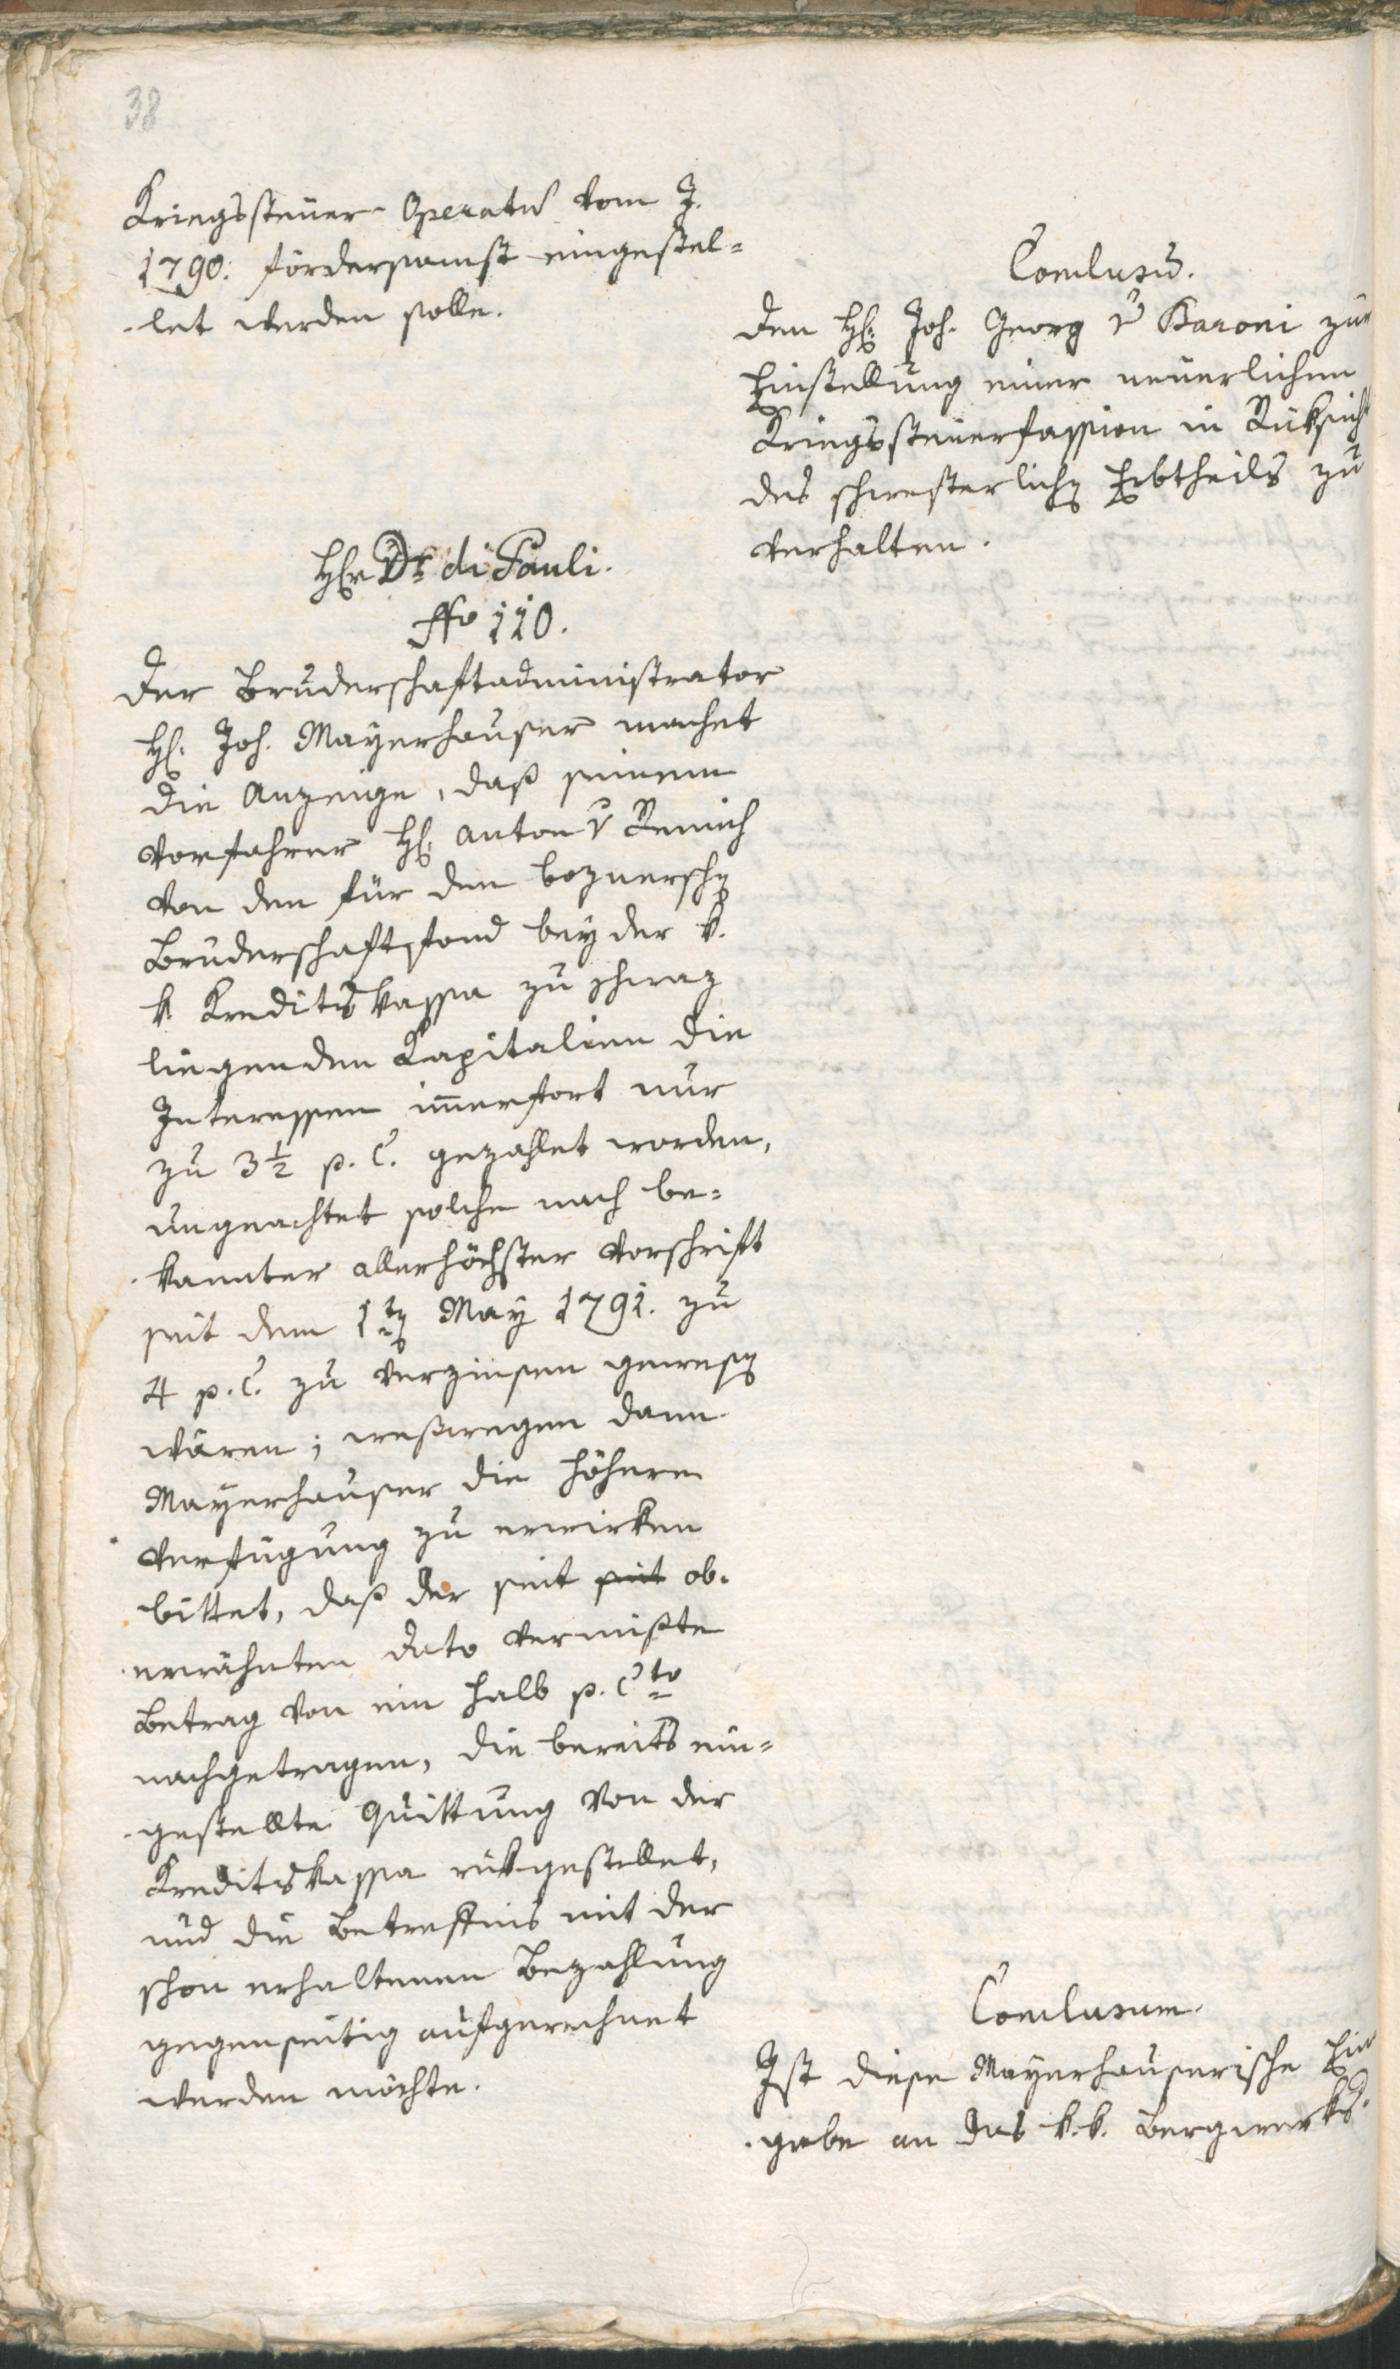 38
Kriegssteuer-Operatũ vom J.
1790. fördersamst eingestel-
-let werden solle.
Conclusũ.
Dem H: Joh. Georg v Baroni zur
Einstellung einer neuerlichen
Kriegssteuerfassion in Rüksicht
des schwesterlichen Erbtheils zu
verhalten.
Hr Dr di Pauli.
No 110.
Der Bruderschaftadministrator
H: Joh. Mayerhauser machet
die Anzeige, daß seinem
Vorfahrer H: Anton v Remich
von den für den boznerschen
Bruderschaftsfond bey der k.
k. Kreditskassa zu Schwaz
liegenden Kapitalien die
Interessen imerfort nur
zu 3 1/2 p. C. gezahlet worden,
ungeachtet solche nach be-
-kannter allerhöchster Vorschrift
seit dem 1ten May 1791. zu
4 p. C. zu verzinsen gewesen
wären; weßwegen dann
Mayerhauser die höhere
Verfügung zu erwirken
bittet, daß der seit seit ob-
-erwähnten dato vermißte
Betrag von ein halb p. Cto
nachgetragen, die bereits ein-
-gestellte Quittung von der
Kreditskassa rükgestellet,
und die Betreffnis mit der
schon erhaltenen Bezahlung
gegenseitig aufgerechnet
werden möchte.
Conclusum.
Ist diese Mayerhauserische Ein
-gabe an das k. k. Bergwerks-